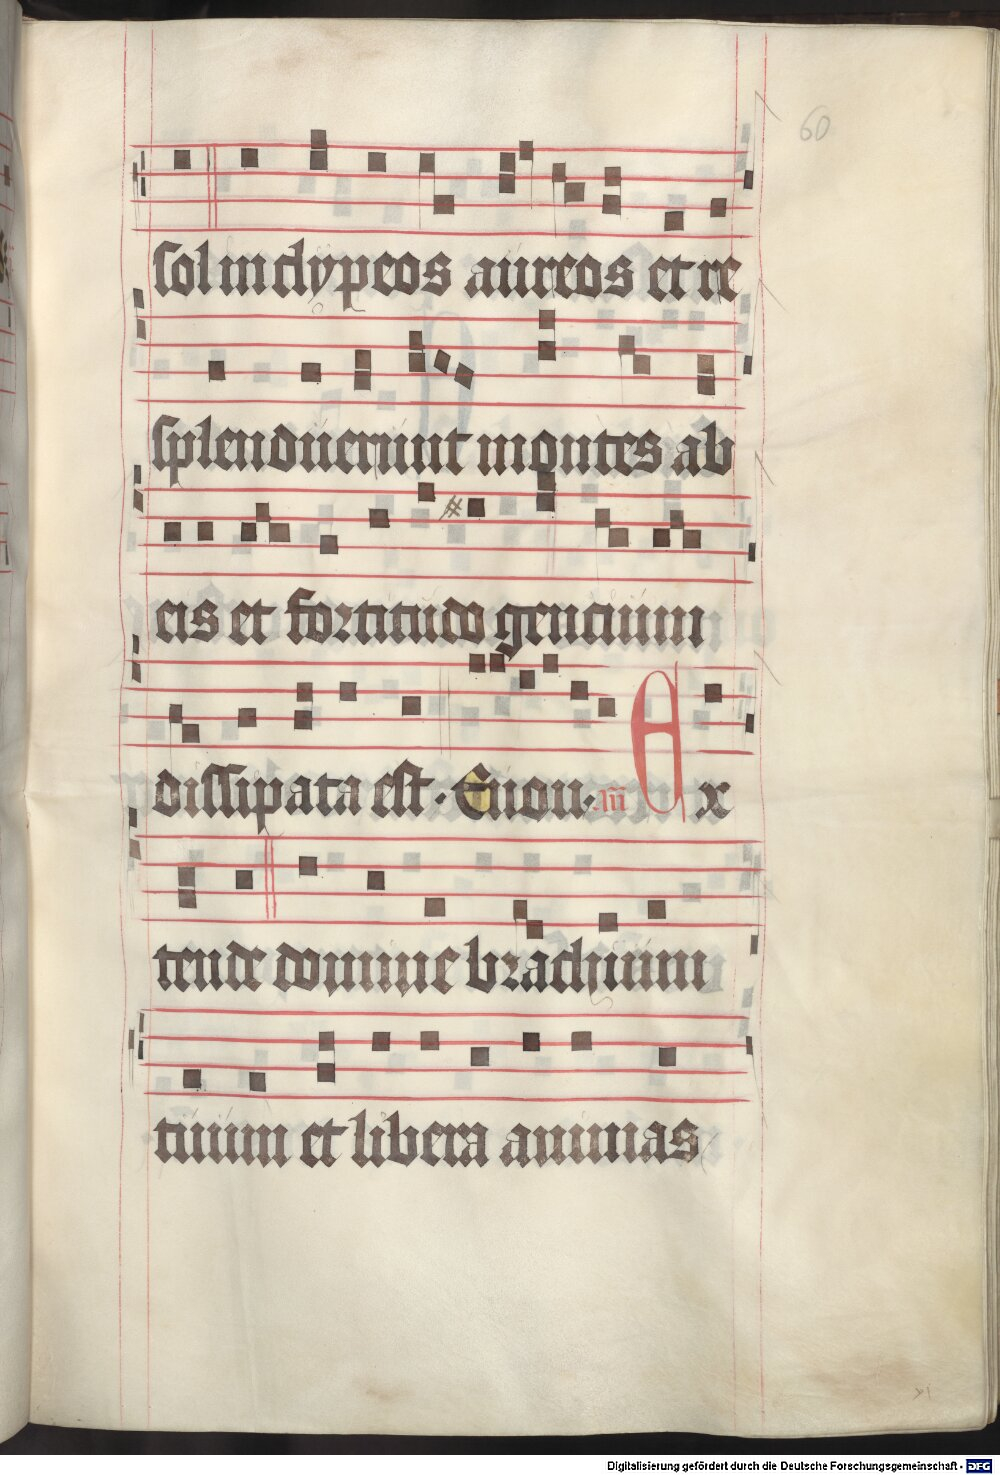 60
sol in clypeos aureos et re
splenduerunt montes ab
eis et fortitudo gentium
dissipata est · Euou · an̄ Ex
tende domine brachium
tuum et libera animas
xi
Digitalisierung gefördert durch die Deutsche Forschungsgemeinschaft - DFG